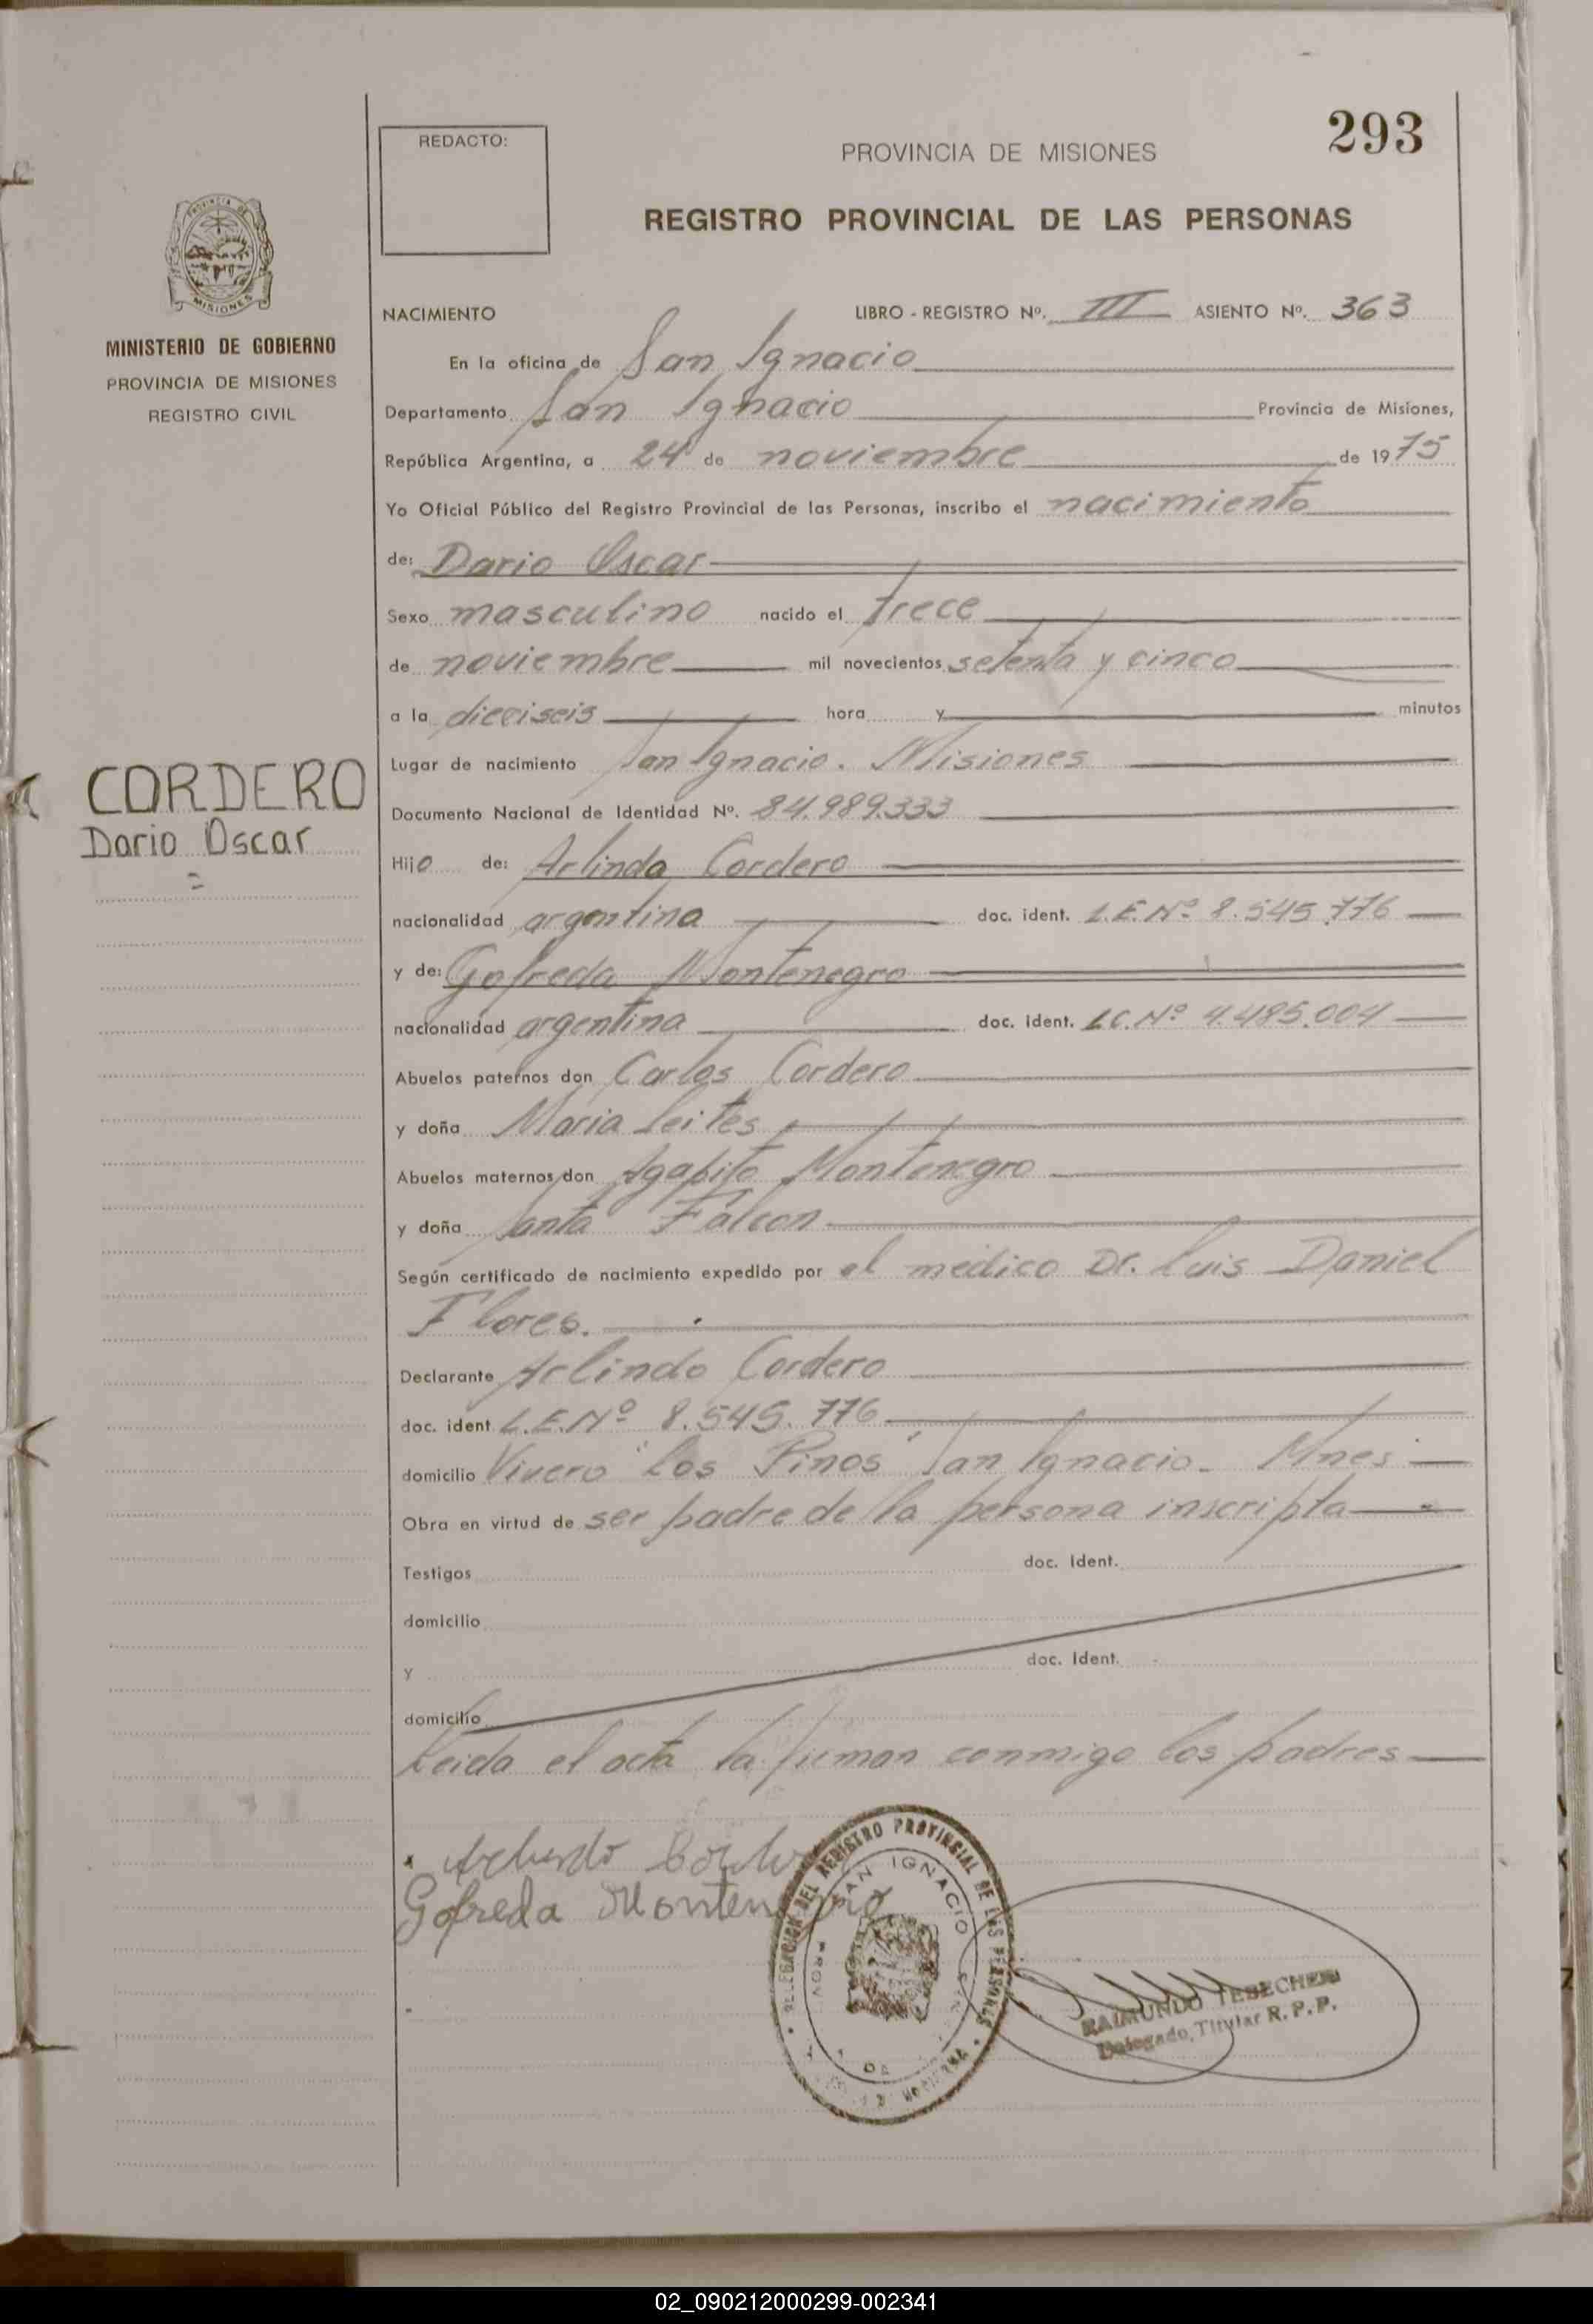 293
REDACTO:
PROVINCIA DE MISIONES
REGISTRO PROVINCIAL DE LAS PERSONAS
PROVINCIA DE
MISIONES
MINISTERIO DE GOBIERNO
PROVINCIA DE MISIONES
REGISTRO CIVIL
NACIMIENTO LIBRO - REGISTRO Nº. III ASIENTO Nº. 363
En la oficina de San Ignacio
Departamento San Ignacio Provincia de Misiones,
República Argentina, a 24 de noviembre de 1975
Yo Oficial Público del Registro Provincial de las Personas, inscribo el nacimiento
de: Dario Oscar
Sexo masculino nacido el trece
de noviembre mil novecientos setenta y cinco
a la dieciseis hora y minutos
Lugar de nacimiento San Ignacio. Misiones
CORDERO
Dario Oscar
Documento Nacional de Identidad Nº. 84.989.333
Hijo de: Arlindo Cordero
nacionalidad argentina doc. ident. L.E.Nº 8.545.776
y de: Gofreda Montenegro
nacionalidad argentina doc. ident. L.C.Nº 4.485.004
Abuelos paternos don Carlos Cordero
y doña Maria Leites
Abuelos maternos don Agapito Montenegro
y doña Santa Falcon
Según certificado de nacimiento expedido por el médico Dr. Luis Daniel
Flores.
Declarante Arlindo Cordero
doc. ident. L.E.Nº 8.545.776
domicilio Vivero "Los Pinos" San Ignacio - Mnes
Obra en virtud de ser padre de la persona inscripta
Testigos doc. Ident.
domicilio
y doc. Ident.
domicilio
Leida el acta la firman conmigo los padres
Arlindo Cordero
Gofreda Montenegro
DELEGACION DEL REGISTRO PROVINCIAL DE LAS PERSONAS
SAN IGNACIO
PROV. DE
RAIMUNDO TESECHEN
Delegado Titular R.P.P.
02_090212000299-002341